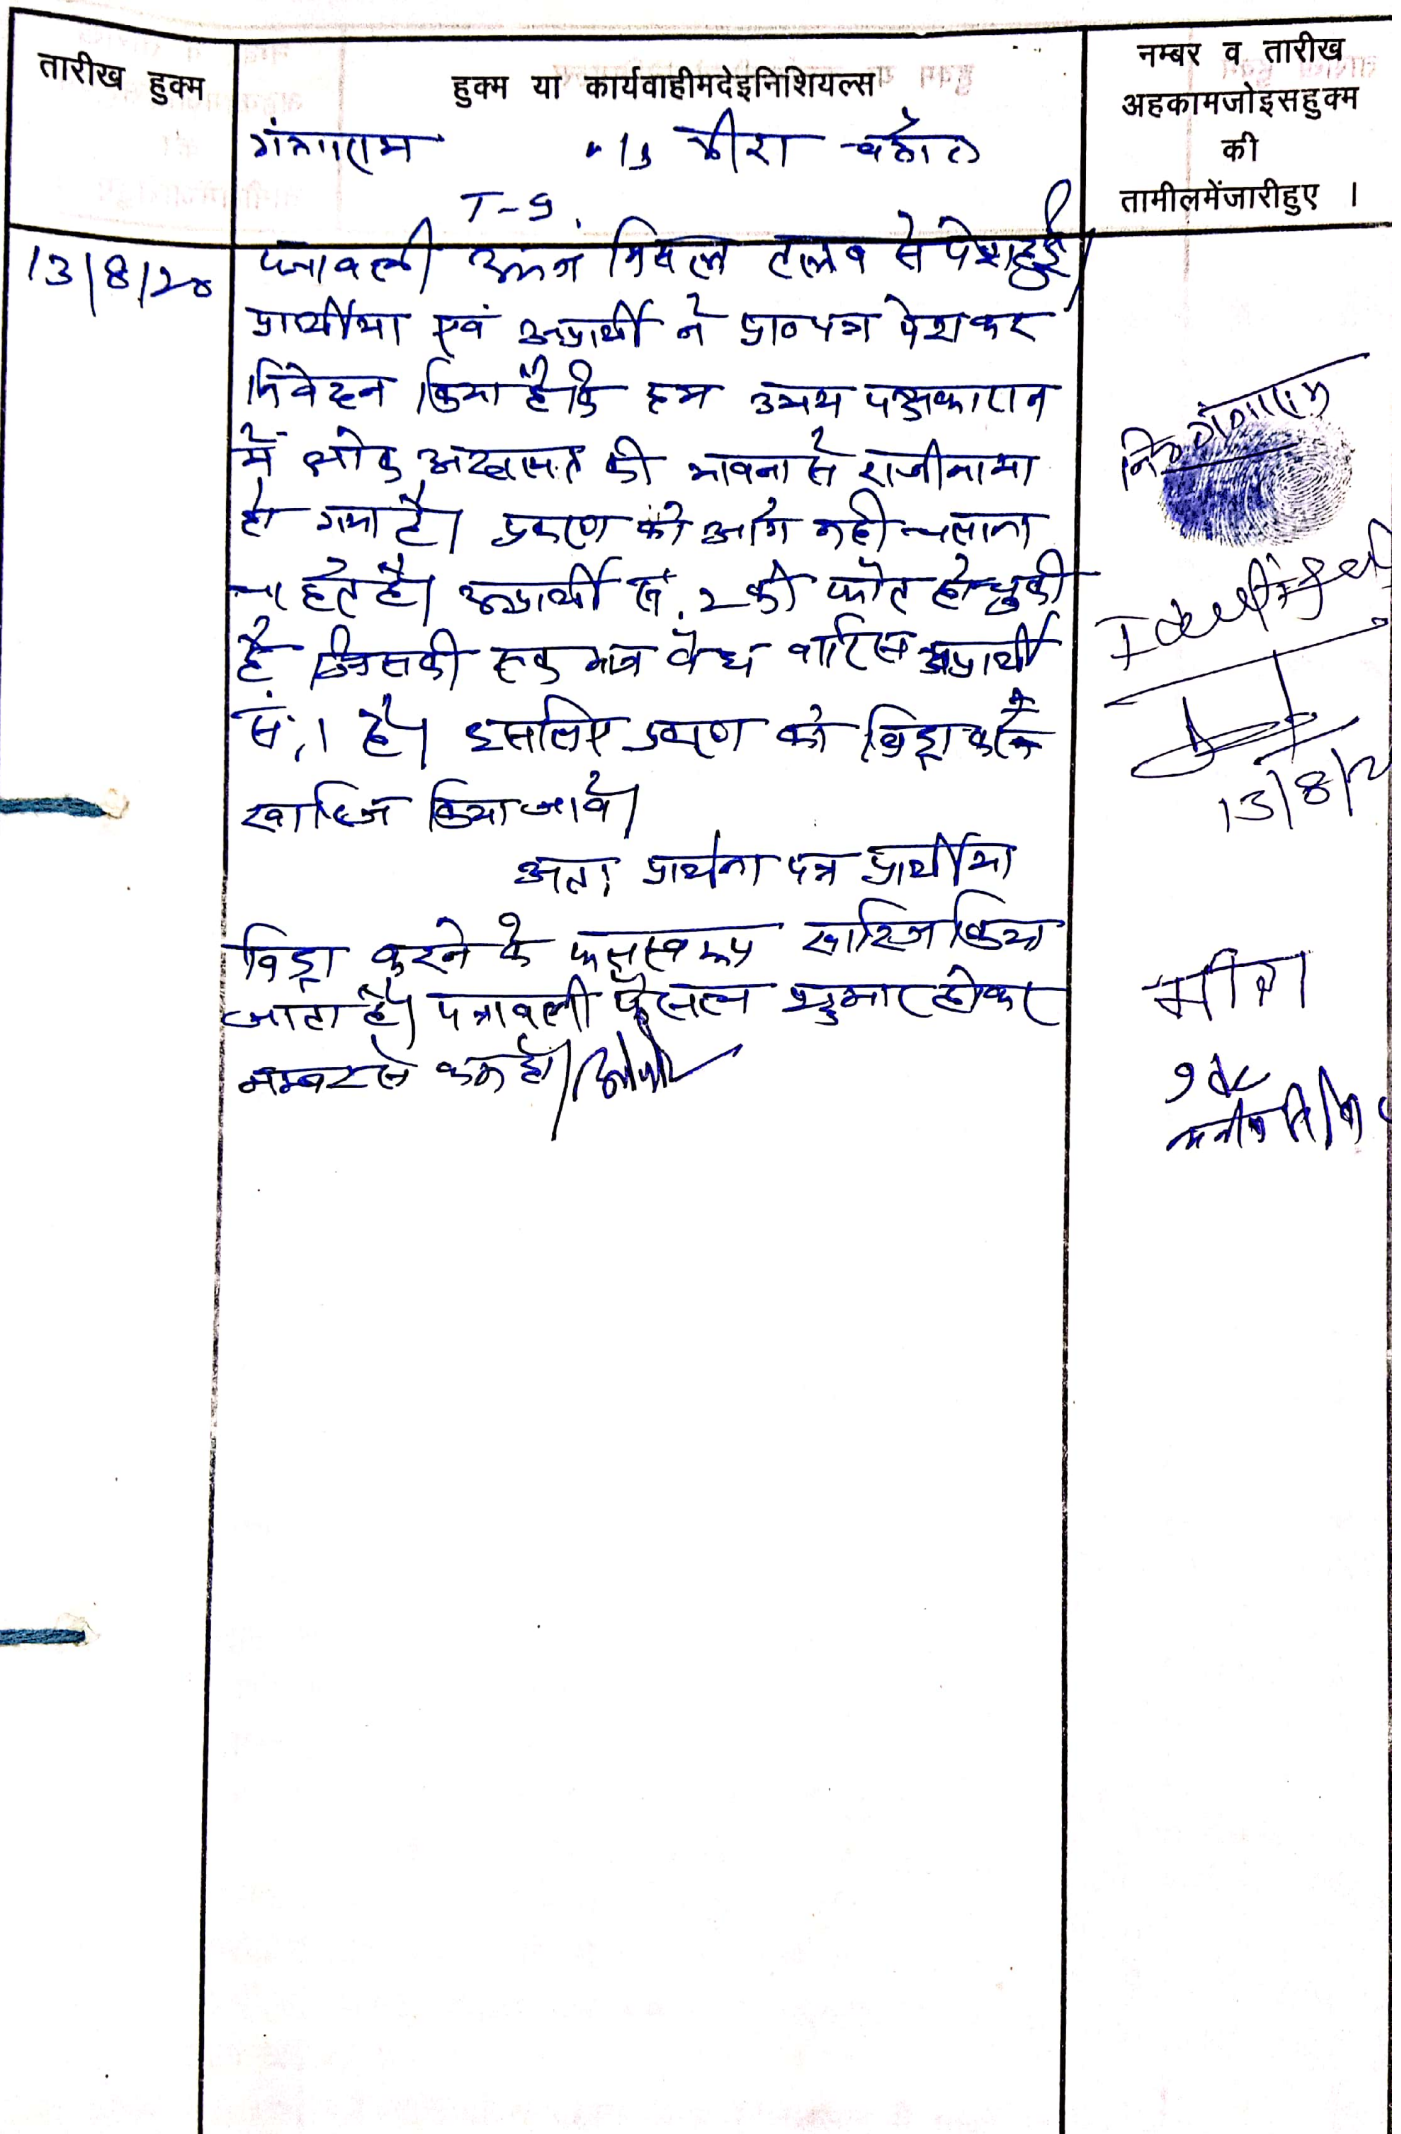 तारीख हुक्म
हुक्म या कार्यवाहीमदेइनिशियल्स
नम्बर व तारीख
अहकामजोइसहुक्म
की
तामीलमेंजारीहुए ।
गंगाराम v/s मीरा
T-9
13/8/20
पत्रावली मिसल तलब से पेश हुई
प्रार्थीया एवं अप्रार्थी ने प्रा० पत्र पेश कर
निवेदन किया है कि हम उभय पक्षकारान
में लोक अदालत की भावना से राजीनामा
हो गया है। प्रकरण को आगे नही चलाना
चाहते है। अप्रार्थी सं. 2 की फोत हो चुकी
है जिसकी एक मात्र वैध वारिस अप्रार्थी
सं. 1 है। इसलिए प्रकरण को विड्रा करने
खारिज किया जावे।
अतः प्रार्थना पत्र प्रार्थीया
विड्रा करने के फलस्वरूप खारिज किया
जाता है। पत्रावली फैसल शुमार होकर
नम्बर से कम हो।
नि० गंगाराम
Identified
13/8/2
मीरा